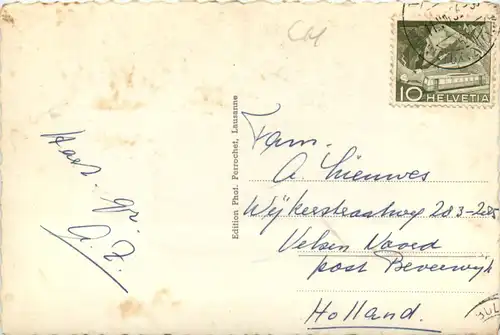 10 HELVETIA
Edition Phot. Perrochet, Lausanne
Hart. gr.
A. Z.
Fam.
A. Nieuwes
Wijkerstraatweg 283-285
Velsen Noord
post Beverwijk
Holland.